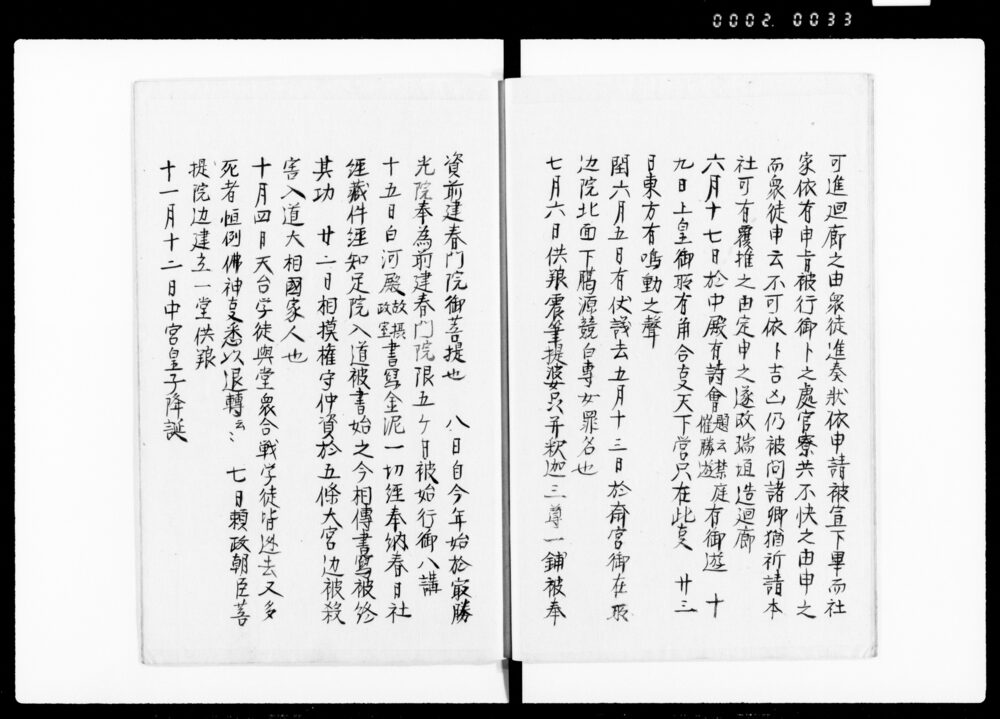 0002.0033
可進廻廊之由衆徒進奏狀依申請被宣下畢而社
家依有申旨被行御卜之處官寮共不快之由申之
而衆徒申云不可依卜吉凶仍被問諸卿猶祈請本
社可有覆推之由定申之遂改瑞垣造廻廊
六月十七日於中殿有詩會題云禁庭催勝遊有御遊 十
九日上皇御所有角合㕝天下営只在此㕝 廿三
日東方有鳴動之聲
閏六月五日有仗議去五月十三日於斎宮御在所
边院北面下臈源競白專女罪名也
七月六日供養宸筆提婆品并釈迦三尊一鋪被奉
資前建春門院御菩提也 八日自今年始於最勝
光院奉為前建春門院限五ケ日被始行御八講
十五日白河殿故摂政室書写金泥一切経奉納春日社
経蔵件経知足院入道被書始之今相傳書写被終
其功 廿二日相摸権守仲資於五條大宮边被殺
害入道大相國家人也
十月四日天台学徒與堂衆合戦学徒皆逃去又多
死者恒例佛神㕝悉以退轉云〻 七日頼政朝臣菩
提院边建立一堂供養
十一月十二日中宮皇子降誕